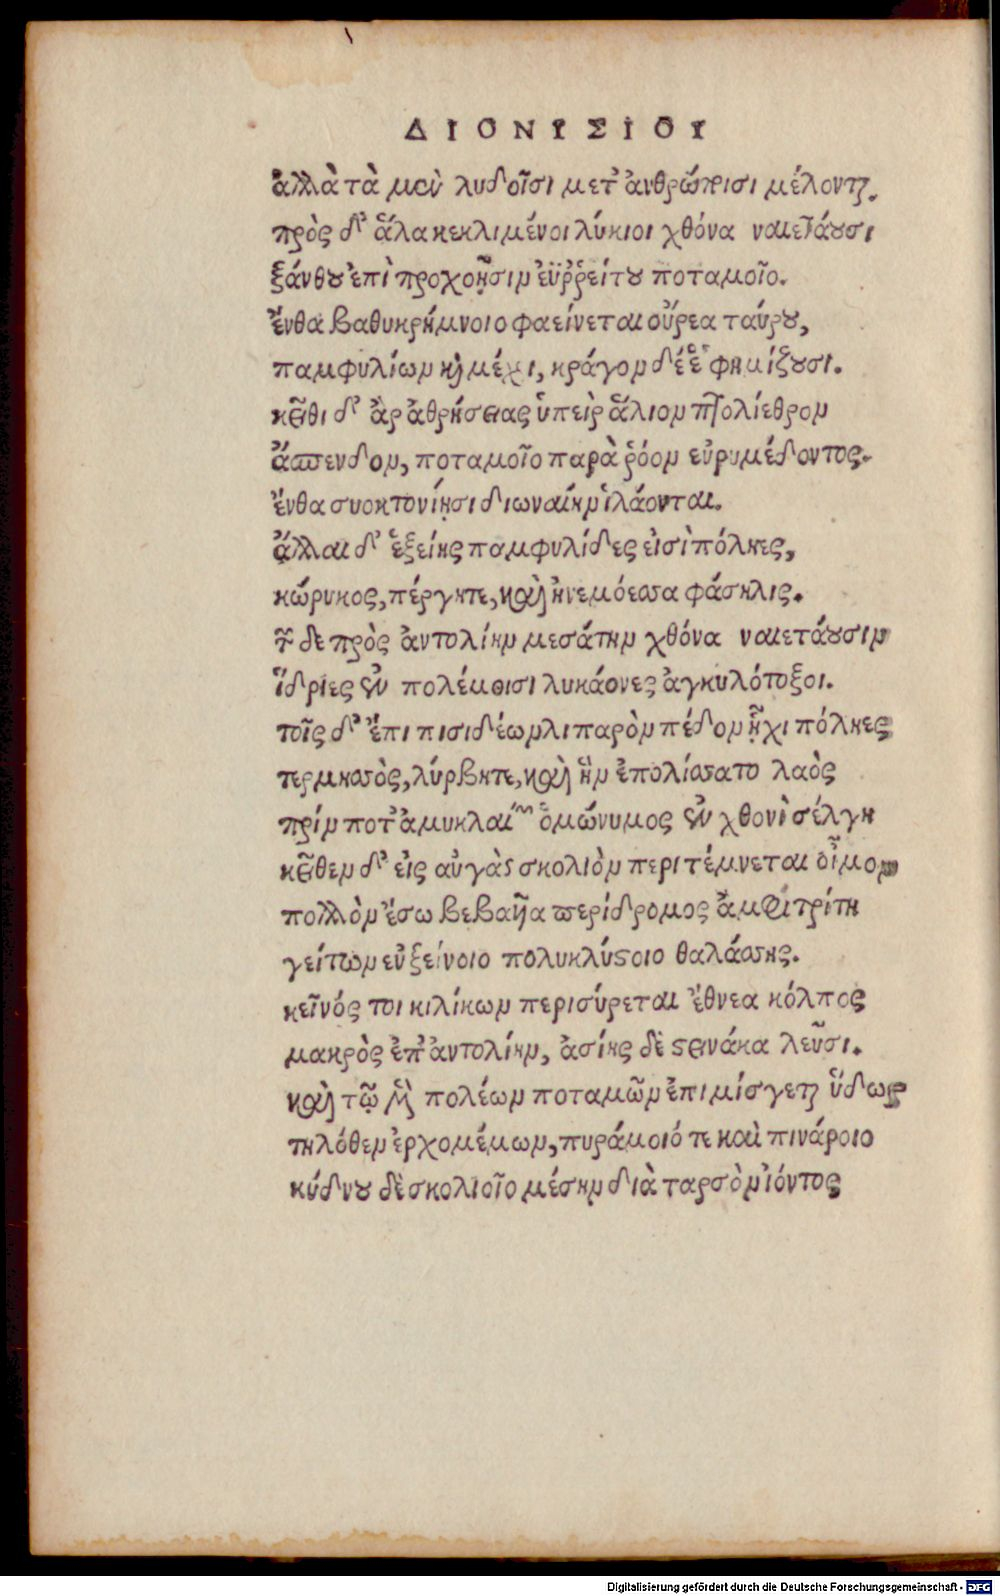 ΔΙΟΝΥΣΙΟΥ
ἀλλὰ τὰ μὲν λυδοῖσι μετ' ἀνθρώποισι μέλονται.
πρὸς δ' ἅλα κεκλιμένοι λύκιοι χθόνα ναιετάουσι
ξάνθου ἐπὶ προχοῇσιν ἐϋῤῥείτου ποταμοῖο.
ἔνθα βαθυκρήμνοιο φαείνεται οὔρεα ταύρου,
παμφυλίων καὶ μέχρι, κράγον δέ ἑ φημίζουσι.
κεῖθι δ' ἂρ ἀθρήσειας ὑπεὶρ ἅλιον πτολίεθρον
ἄσπενδον, ποταμοῖο παρὰ ῥόον εὐρυμέδοντος.
ἔνθα συοκτονίῃσι διωναίην ἱλάονται.
ἄλλαι δ' ἑξείης παμφυλίδες εἰσὶ πόληες,
κώρυκος, πέργητε, καὶ ἠνεμόεσσα φάσηλις.
τῶν δὲ πρὸς ἀντολίην μεσάτην χθόνα ναιετάουσιν
ἵδριες ἐν πολέμοισι λυκάονες ἀγκυλότοξοι.
τοῖς δ' ἔπι πισιδέων λιπαρὸν πέδον ᾗχι πόληες
τερμησσὸς, λύρβητε, καὶ ἣν ἐπολίσσατο λαὸς
πρίν ποτ' ἀμυκλαίων ὁμώνυμος ἐν χθονὶ σέλγη
κεῖθεν δ' εἰς αὐγὰς σκολιὸν περιτέμνεται οἶμον
πολλὸν ἔσω βεβαῆα περίδρομος ἀμφιτρίτη
γείτων εὐξείνοιο πολυκλύστοιο θαλάσσης.
κεῖνός τοι κιλίκων περισύρεται ἔθνεα κόλπος
μακρὸς ἐπ' ἀντολίην, ἀσίης δὲ στεινάκα λεῦσι.
καὶ τῷ μὲν πολέων ποταμῶν ἐπιμίσγεται ὕδωρ
τηλόθεν ἐρχομέμων, πυράμοιό τε καὶ πινάροιο
κύδνου δὲ σκολιοῖο μέσην διὰ ταρσὸν ἰόντος
Digitalisierung gefördert durch die Deutsche Forschungsgemeinschaft - DFG